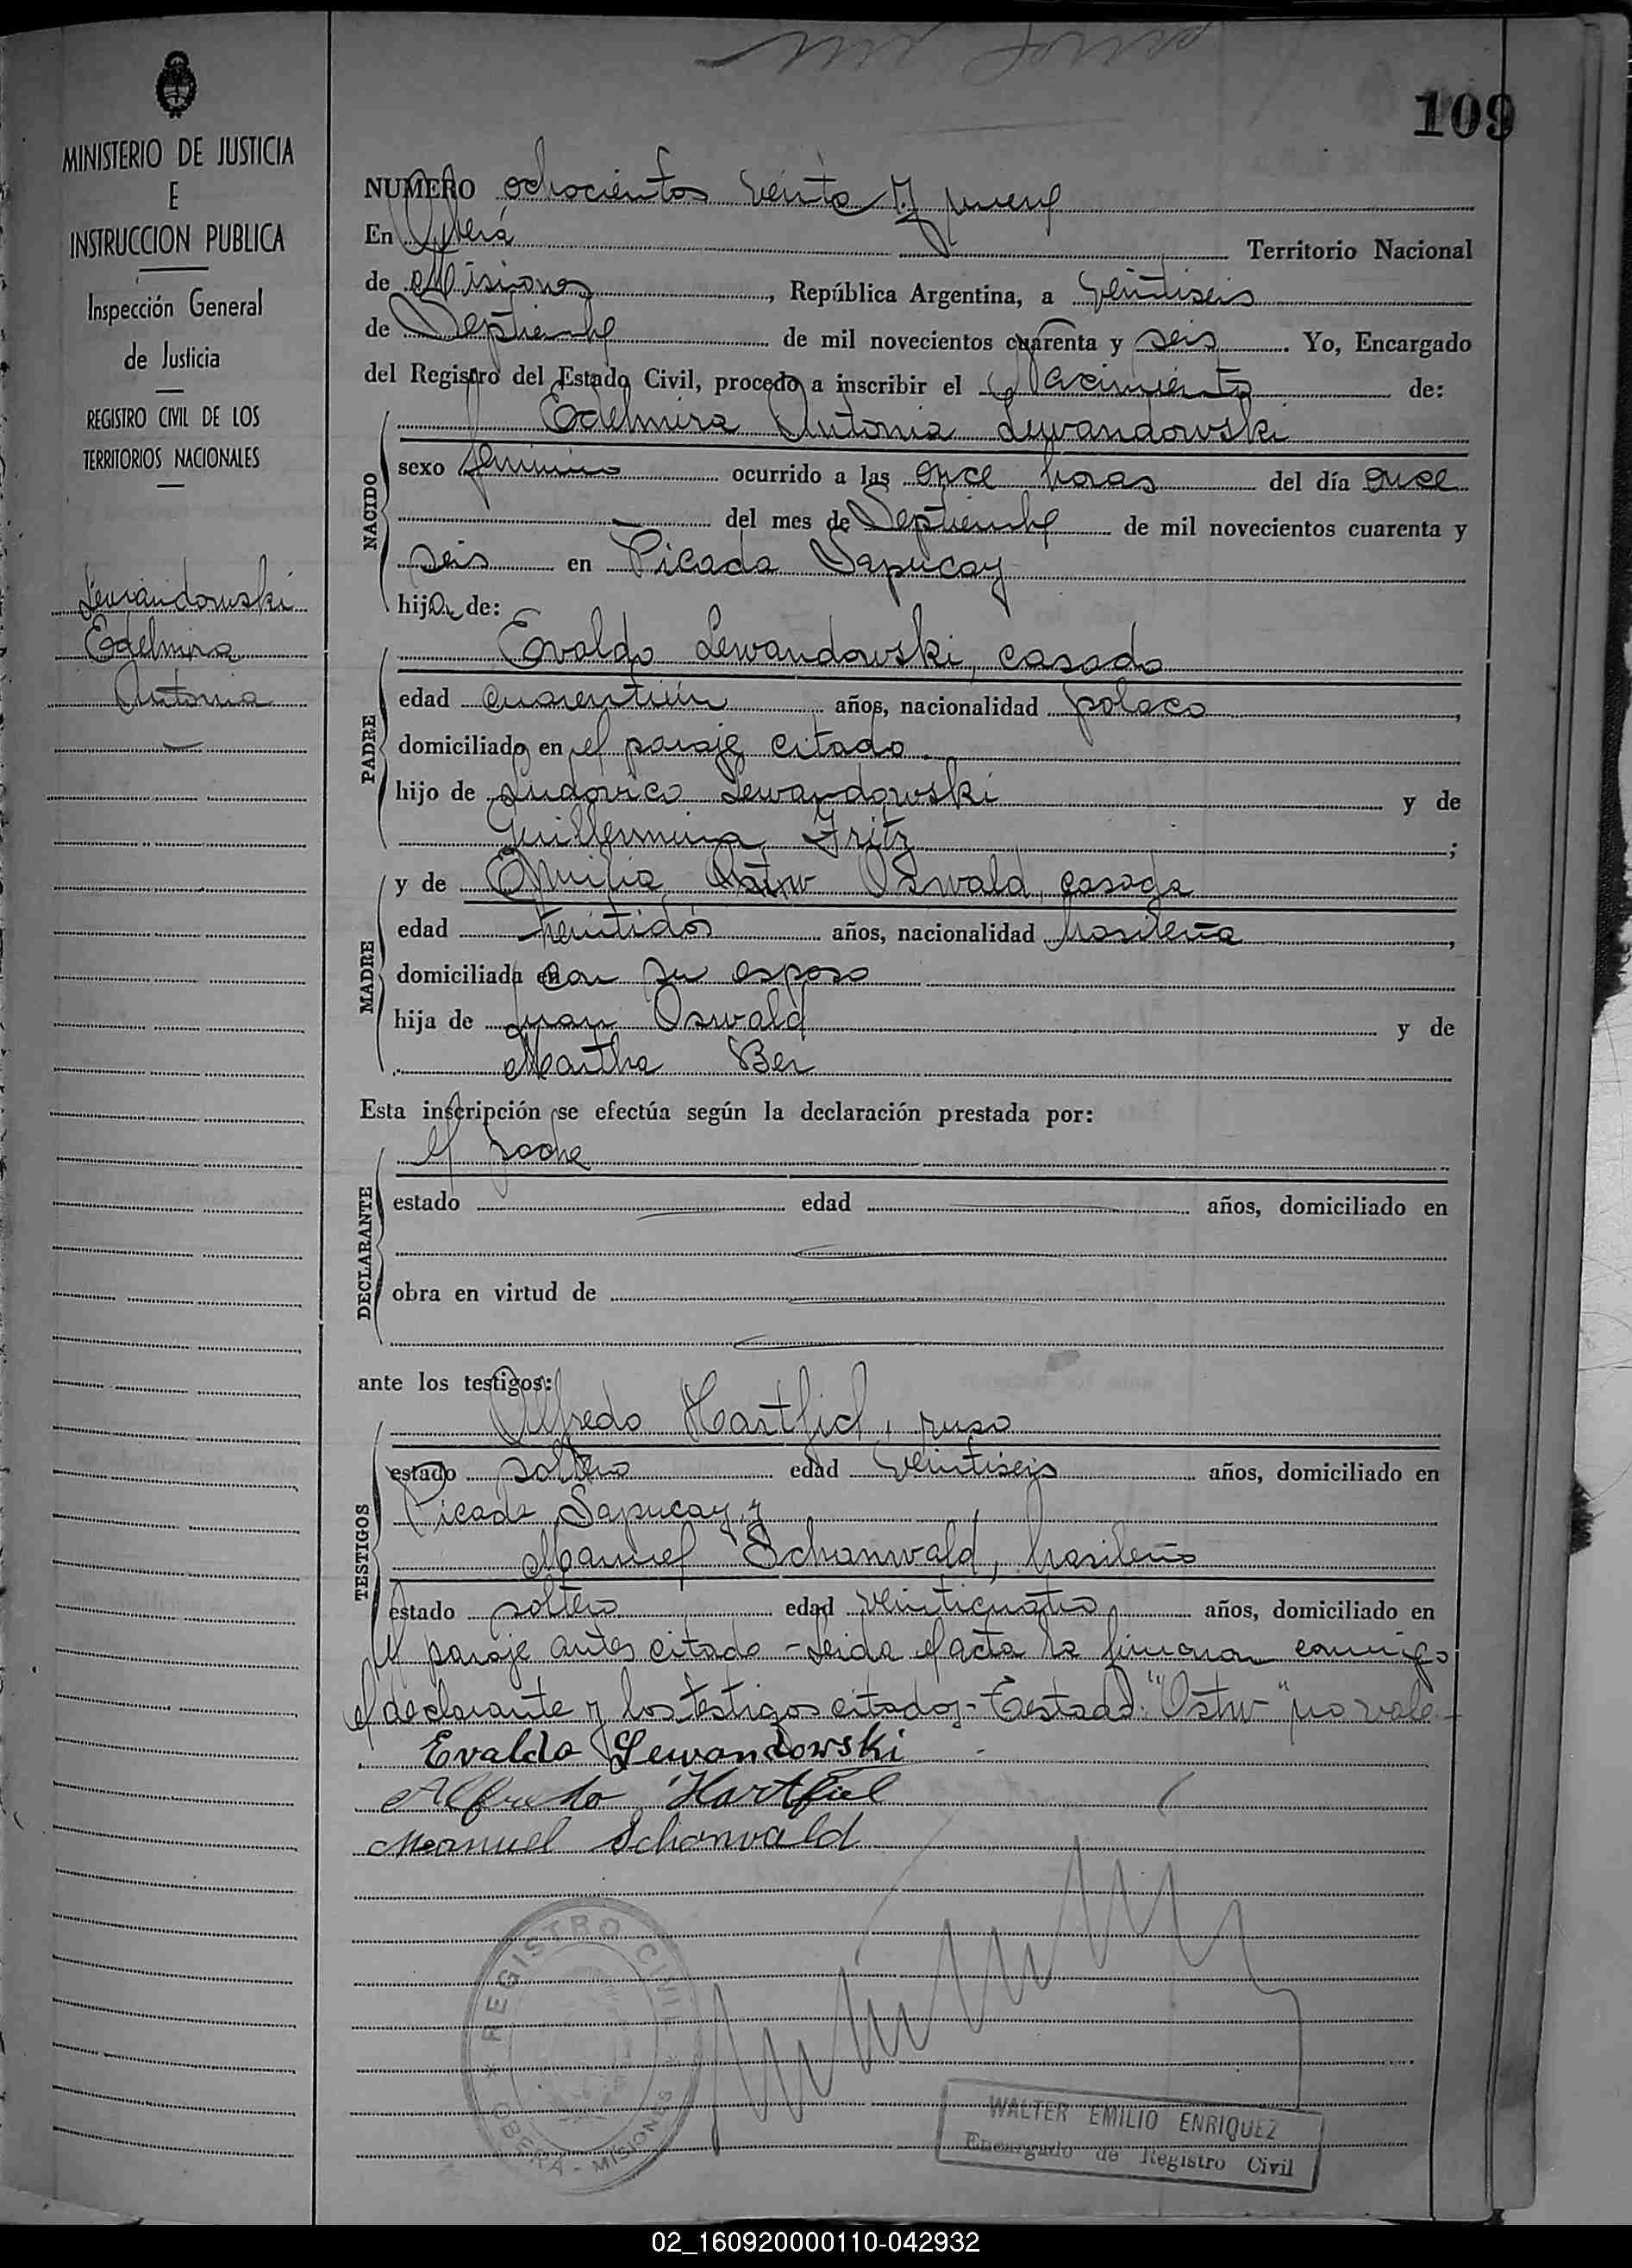 109
MINISTERIO DE JUSTICIA
E
INSTRUCCION PUBLICA
Inspección General
de Justicia
REGISTRO CIVIL DE LOS
TERRITORIOS NACIONALES
Lewandowski
Edelmira
Antonia
NUMERO ochocientos veinte y nueve
En Oberá Territorio Nacional
de Misiones, República Argentina, a veintiseis
de Septiembre de mil novecientos cuarenta y seis. Yo, Encargado
del Registro del Estado Civil, procedo a inscribir el Nacimiento de:
NACIDO
Edelmira Antonia Lewandowski
sexo femenino ocurrido a las once horas del día once
del mes de Septiembre de mil novecientos cuarenta y
seis en Picada Sapucay
hija de:
PADRE
Evaldo Lewandowski, casado
edad cuarentiún años, nacionalidad polaco,
domiciliado en el paraje citado.
hijo de Ludovico Lewandowski y de
Guillermina Fritz;
MADRE
y de Emilia Ostw Oswald, casada
edad treintidós años, nacionalidad brasileña,
domiciliada en con su esposo
hija de Juan Oswald y de
Martha Ber
Esta inscripción se efectúa según la declaración prestada por:
DECLARANTE
el padre
estado edad años, domiciliado en
obra en virtud de
ante los testigos:
TESTIGOS
Alfredo Hartfiel, ruso
estado soltero edad veintiseis años, domiciliado en
Picada Sapucay, y
Manuel Schanwald, brasileño
estado soltero edad veinticuatro años, domiciliado en
el paraje antes citado - Leida el acta la firmaron conmigo
el declarante y los testigos citados - Testado: "Ostw" no vale -
Evaldo Lewandowski
Alfredo Hartfiel
Manuel Schanwald
REGISTRO CIVIL
OBERÁ - MISIONES
WALTER EMILIO ENRIQUEZ
Encargado de Registro Civil
02_160920000110-042932